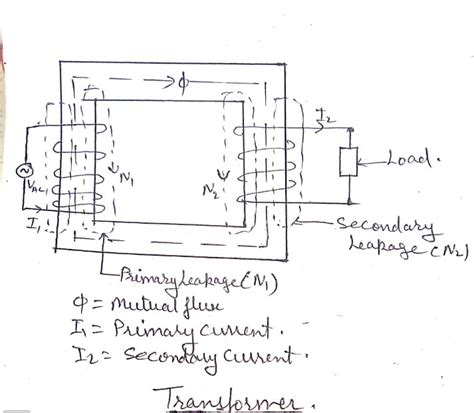 ϕ
I₂
Load.
VAC,
N₁
N₂
I₁
Secondary
Leakage (N₂)
Primary Leakage (N₁)
ϕ = Mutual flux
I₁ = Primary Current.
I₂ = Secondary Current.
Transformer.